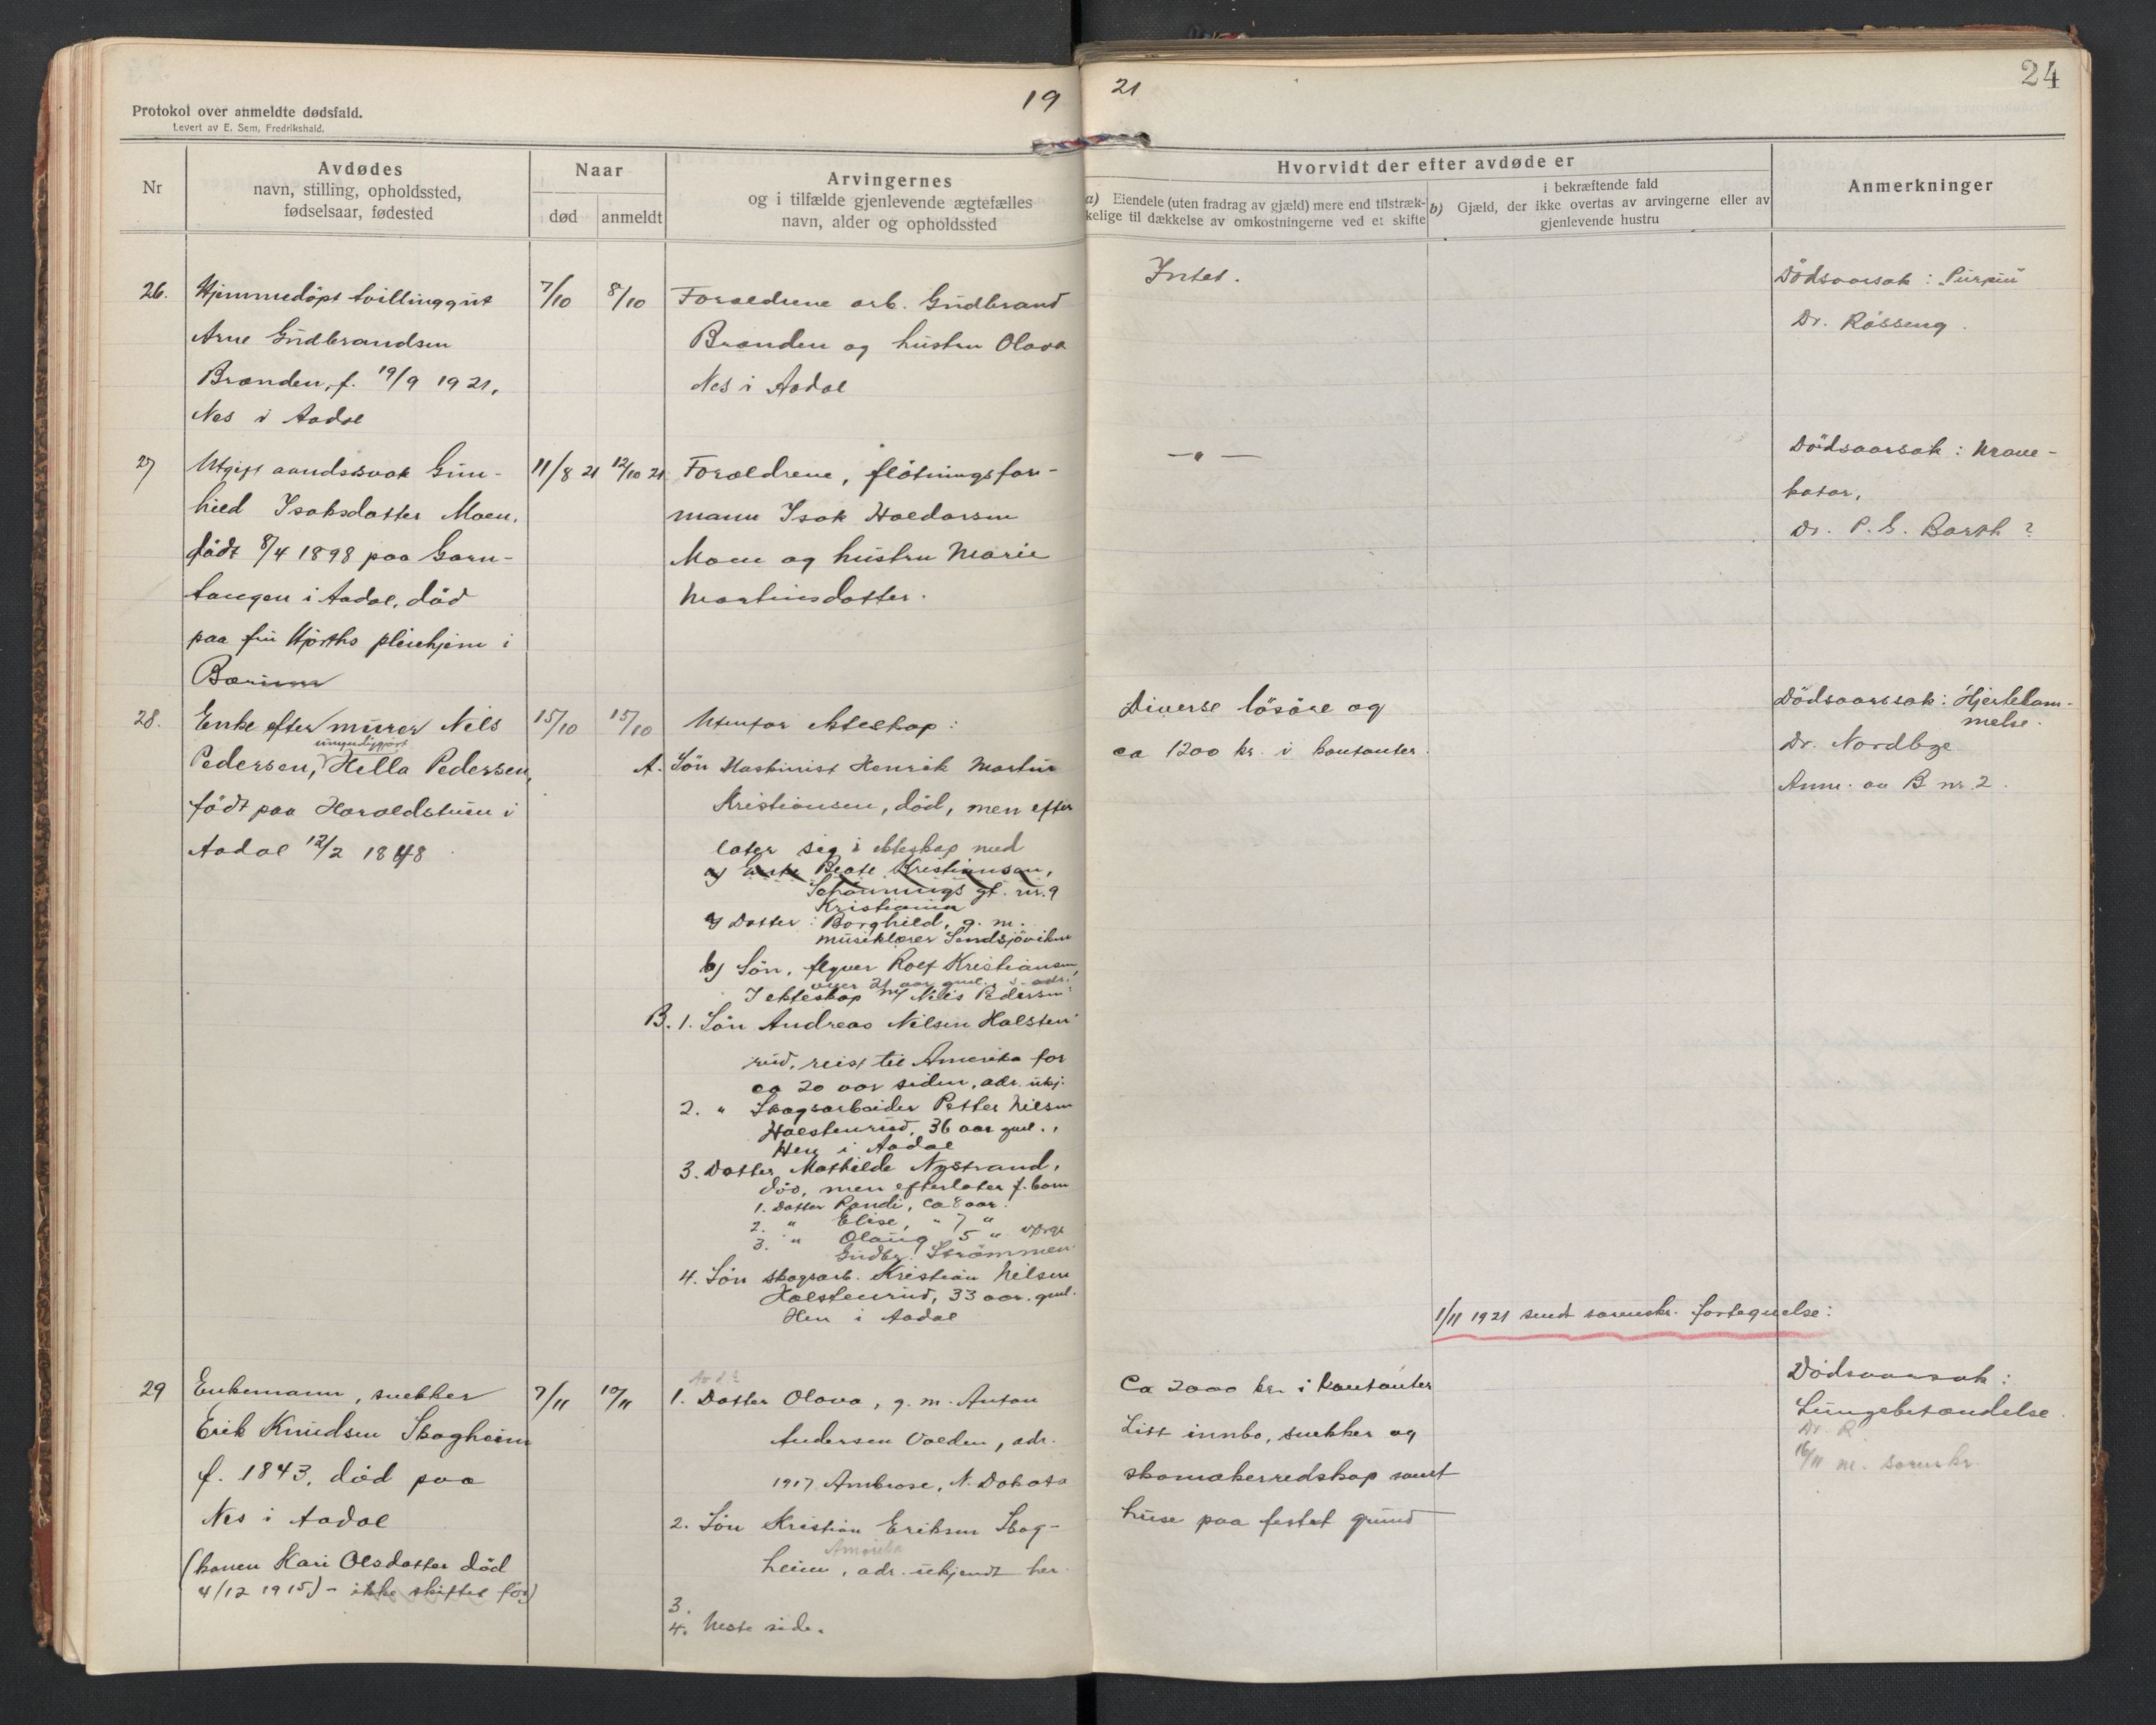 Protokol over anmeldte dødsfald.
Levert av E. Sem, Fredrikshald.
19
21
24
Nr
Avdødes
navn, stilling, opholdssted,
fødselsaar, fødested
Naar
død
anmeldt
Arvingernes
og i tilfælde gjenlevende ægtefælles
navn, alder og opholdssted
Hvorvidt der efter avdøde er
a) Eiendele (uten fradrag av gjæld) mere end tilstræk-
kelige til dækkelse av omkostningerne ved et skifte
i bekræftende fald
b) Gjæld, der ikke overtas av arvingerne eller av
gjenlevende hustru
Anmerkninger
26.
Hjemmedöpt tvillinggut
Arne Gudbrandsen
Branden, f. 19/9 1921,
Nes i Aadal
7/10
8/10
Foraeldrene arb. Gudbrand
Branden og hustru Olava
Nes i Aadal
Intet.
Dödsaarsak:
Dr. Rösseng.
27
Ugift aandssvak Gun-
hild Isaksdatter Moen,
födt 8/4 1898 paa Garn-
tangen i Aadal, död
paa fru Hjorths pleiehjem i
Bærum
11/8 21
12/10 21
Foraeldrene, flötningsfor-
mann Isak Haldorsen
Moen og hustru Marie
Martinsdatter.
— " —
Dödsaarsak: Mave-
katar,
Dr. P. G. Barth?
28.
Enke efter murer Nils
umyndiggjort
Pedersen, Hella Pedersen,
födt paa Haraldstuen i
Aadal 12/2 1848
15/10
15/10
Utenfor ekteskap:
A. Sön Maskinist Henrik Martin
Kristiansen, död, men efter
later sig i ekteskap med
a) Enke Beate Kristiansen,
Schönnings gt. nr. 9
Kristiania
a) Datter: Borghild, g. m.
musiklærer Sandsjöviken
b) Sön, flyver Rolf Kristiansen,
over 21 aar gml. s. adr.
I ekteskap m/ Nils Pedersen:
B. 1. Sön Andreas Nilsen Halsten-
rud, reist til Amerika for
ca 20 aar siden, adr. ukj.
2. " Skogsarbeider Petter Nilsen
Halstenrud, 36 aar gml.,
Hen i Aadal
3. Datter Mathilde Nystrand,
död, men efterlater f. barn
1. Datter Randi, ca 8 aar.
2. " Elise, " 7 "
3. " Olaug 5 " verge
Gudbr. Strömmen
4. Sön skogsarb. Kristian Nilsen
Halstenrud, 33 aar. gml.
Hen i Aadal
Diverse lösöre og
ca 1200 kr. i kontanter.
Dödsaarssak: Hjertelam-
melse.
Dr. Nordbye
Anm. av B nr. 2.
1/11 1921 sendt sorenskr. fortegnelse:
29
Enkemann, snekker
Erik Knudsen Skogheim
f. 1843, död paa
Nes i Aadal
(konen Kari Olsdatter död
4/12 1915) - ikke skiftet for)
7/11
10/11
1. Datter Olava, g. m. Anton
Andersen Valden, adr.
1917 Ambrose, N. Dakota
2. Sön Kristian Eriksen Skog-
Amerika
heim, adr. ukjendt her.
3.
4. Neste side.
Ca 2000 kr. i kontanter
Litt innbo, snekker og
skomakerredskap samt
huse paa festet grund
Dödsaarsak:
Lungebetændelse.
Dr. R
16/11 m. sorenskr.